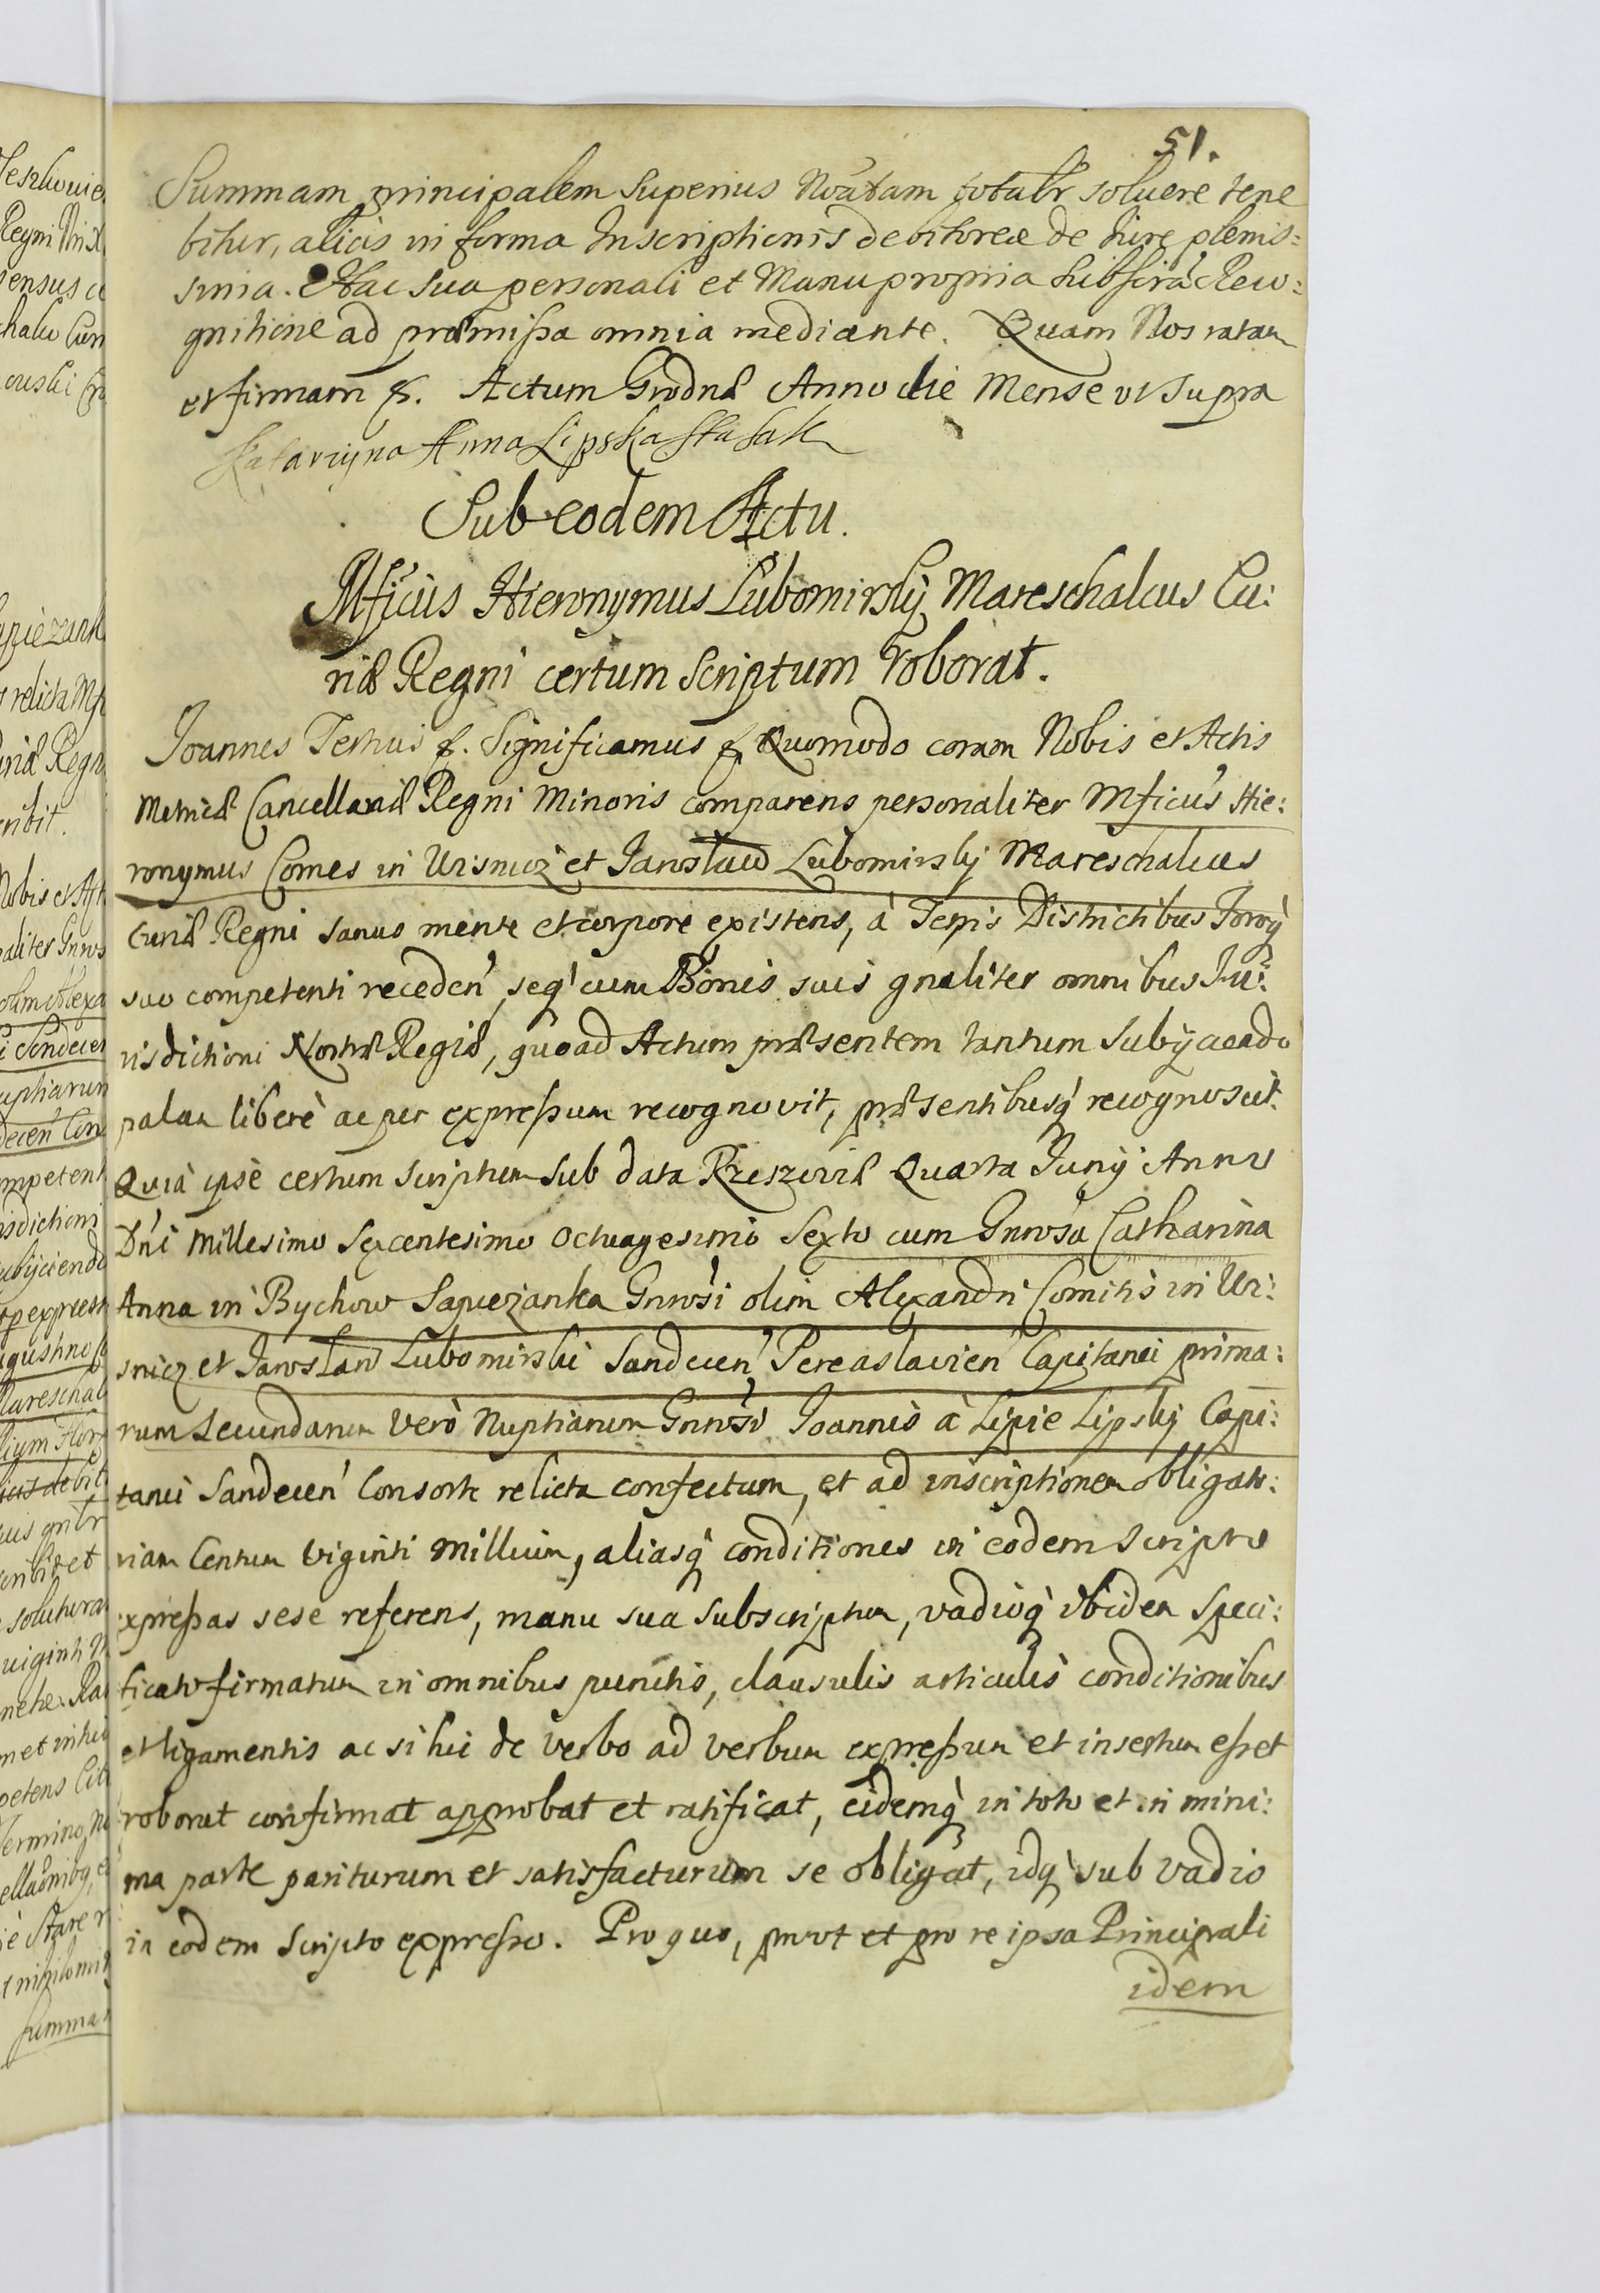 51.
Summam principalem superius Noũtam totalr soluere tene
bitur, alicis in forma Inscriptionis debitoreæ de Iure plenis=
sima. Hac sua personali et Manu propria subscrã Reco=
gnitione ad præmissa omnia mediante. Quam Nos ratam
et firmam &. Actum Grodnæ Anno die Mense ut supra
Katarzyna Anna Lipska
Sub eodem Actu.
Mficus Hieronymus Lubomirskÿ Mareschalcus Cu:
riæ Regni certum scriptum roborat.
Joannes Tertius &. Significamus & Quomodo coram Nobis et Actis
Metricæ Cancellariæ Regni Minoris comparens personaliter Mficus Hie:
ronymus Comes in Wisnicz et Jaroslaw Lubomirskÿ Mareschalcus
Curiæ Regni sanus mente et corpore existens, à Terris Districtibus Foroq̀
suo competenti receden̕, seq̀ cum Bonis suis gnaliter omnibus Iu:
risdictioni Nostræ Regiæ, quoad Actum præsentem tantum subÿcendo
palam liberè ac per expressum recognovit, præsentibusq̀ recognoscit.
Quia ipse certum scriptum sub data Rzeszoviæ Quarta Junÿ Anno
Dni Millesimo Sexcentesimo Octuagesimo Sexto cum Gnrosa Catharina
Anna in Bychow Sapiezanka Gnrosi olim Alexandri Comitis in Wi:
snicz et Jaroslaw Lubomirski Sandecen̕, Pereaslavien̕ Capitanei prima:
rum secundarum verò Nuptiarum Gnrosi Joannis à Lipie Lipskÿ Capi:
tanei Sandecen̕ Consorte relicta confectum, et ad inscriptionem obligato:
riam Centum Viginti Millium, aliasq̀ conditiones in eodem scripto
expressas sese referens, manu sua subscriptum, vadioq̀ ibidem speci:
ficato firmatum in omnibus punctis, clausulis articulis conditionibus
et ligamentis ac si hic de verbo ad verbum expressum et insertum esset
roborat confirmat approbat et ratificat, eidemq̀ in toto et in mini:
ma parte pariturum et satisfacturum se obligat, idq̀ sub vadio
in eodem scripto expresso. Pro quo, prout et pro re ipsa Principali
idem